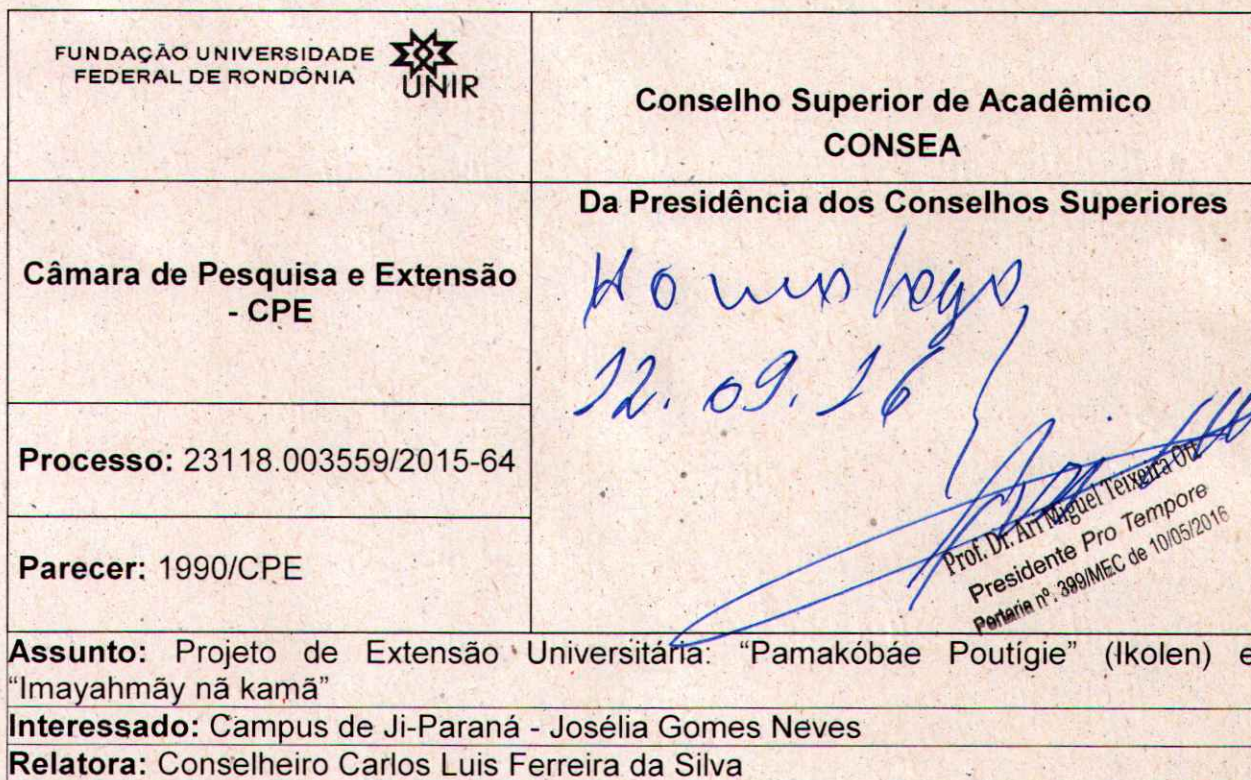 FUNDAÇÃO UNIVERSIDADE
FEDERAL DE RONDÔNIA
UNIR
Conselho Superior de Acadêmico
CONSEA
Câmara de Pesquisa e Extensão
- CPE
Da Presidência dos Conselhos Superiores
Homologo
12.09.16
Prof. Dr. Ari Miguel Teixeira Ott
Presidente Pro Tempore
Portaria nº. 399/MEC de 10/05/2016
Processo: 23118.003559/2015-64
Parecer: 1990/CPE
Assunto: Projeto de Extensão Universitária: “Pamakóbáe Poutígie” (Ikolen) e
“Imayahmãy nã kamã”
Interessado: Campus de Ji-Paraná - Josélia Gomes Neves
Relatora: Conselheiro Carlos Luis Ferreira da Silva